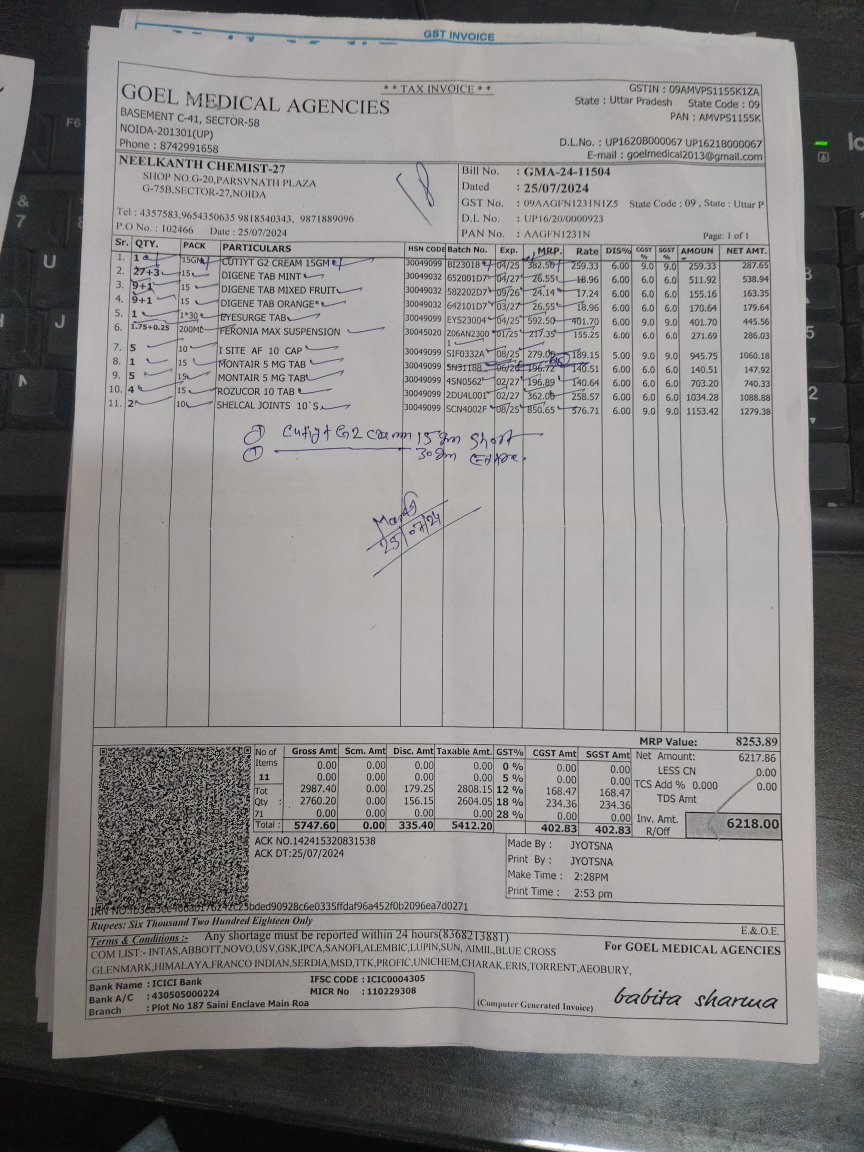 GST INVOICE
* * TAX INVOICE * *
GOEL MEDICAL AGENCIES
BASEMENT C-41, SECTOR-58
NOIDA-201301(UP)
Phone : 8742991658
GSTIN : 09AMVPS1155K1ZA
State : Uttar Pradesh State Code : 09
PAN : AMVPS1155K
D.L.No. : UP1620B000067 UP1621B000067
E-mail : goelmedical2013@gmail.com
NEELKANTH CHEMIST-27
SHOP NO.G-20,PARSVNATH PLAZA
G-75B,SECTOR-27,NOIDA
Tel : 4357583,9654350635 9818540343, 9871889096
P.O No : 102466 Date : 25/07/2024
18
Bill No. : GMA-24-11504
Dated : 25/07/2024
GST No. : 09AAGFN1231N1Z5 State Code : 09 , State : Uttar P
D.L No. : UP16/20/0000923
PAN No. : AAGFN1231N Page: 1 of 1
Sr. QTY. PACK PARTICULARS HSN CODE Batch No. Exp. MRP. Rate DIS% CGST % SGST % AMOUN NET AMT.
1. 1 15GM CUTIYT G2 CREAM 15GM 30049099 BI23018 04/25 382.50 259.33 6.00 9.0 9.0 259.33 287.65
2. 27+3 15 DIGENE TAB MINT 30049032 652001D7 04/27 26.55 18.96 6.00 6.0 6.0 511.92 538.94
3. 9+1 15 DIGENE TAB MIXED FRUIT 30049032 582202D7 09/26 24.14 17.24 6.00 6.0 6.0 155.16 163.35
4. 9+1 15 DIGENE TAB ORANGE* 30049032 642101D7 03/27 26.55 18.96 6.00 6.0 6.0 170.64 179.64
5. 1 1*30 EYESURGE TAB 30049099 EYS23004 04/25 592.50 401.70 6.00 9.0 9.0 401.70 445.56
6. 1.75+0.25 200ML FERONIA MAX SUSPENSION 30045020 Z06AN2300 01/25 217.35 155.25 6.00 6.0 6.0 271.69 286.03
1
7. 5 10 I SITE AF 10 CAP 30049099 SIF0332A 08/25 279.00 189.15 5.00 9.0 9.0 945.75 1060.18
8. 1 15 MONTAIR 5 MG TAB 30049099 5N3118B 06/26 196.72 140.51 6.00 6.0 6.0 140.51 147.92
9. 5 15 MONTAIR 5 MG TAB 30049099 4SN0562 02/27 196.89 140.64 6.00 6.0 6.0 703.20 740.33
10. 4 15 ROZUCOR 10 TAB 30049099 2DU4L001 02/27 362.00 258.57 6.00 6.0 6.0 1034.28 1088.88
11. 2 10 SHELCAL JOINTS 10`S 30049099 SCN4002F 08/25 850.65 576.71 6.00 9.0 9.0 1153.42 1279.38
① Cutiyt G2 cream 15gm Short
① 30gm Extra.
25/07/24
MRP Value: 8253.89
No of Items 11 Tot Qty : 71
Gross Amt Scm. Amt Disc. Amt Taxable Amt. GST% CGST Amt SGST Amt
0.00 0.00 0.00 0.00 0 % 0.00 0.00
0.00 0.00 0.00 0.00 5 % 0.00 0.00
2987.40 0.00 179.25 2808.15 12 % 168.47 168.47
2760.20 0.00 156.15 2604.05 18 % 234.36 234.36
0.00 0.00 0.00 0.00 28 % 0.00 0.00
Total : 5747.60 0.00 335.40 5412.20 402.83 402.83
Net Amount: 6217.86
LESS CN 0.00
TCS Add % 0.000 0.00
TDS Amt
Inv. Amt. R/Off 6218.00
ACK NO.142415320831538
ACK DT:25/07/2024
Made By : JYOTSNA
Print By : JYOTSNA
Make Time : 2:28PM
Print Time : 2:53 pm
Rupees: Six Thousand Two Hundred Eighteen Only
E.& O.E.
Terms & Conditions :- Any shortage must be reported within 24 hours(8368213881)
COM LIST:- INTAS,ABBOTT,NOVO,USV,GSK,IPCA,SANOFI,ALEMBIC,LUPIN,SUN, AIMIL,BLUE CROSS
GLENMARK,HIMALAYA,FRANCO INDIAN,SERDIA,MSD,TTK,PROFIC,UNICHEM,CHARAK,ERIS,TORRENT,AEOBURY,
For GOEL MEDICAL AGENCIES
Bank Name : ICICI Bank IFSC CODE : ICIC0004305
Bank A/C : 430505000224 MICR No : 110229308
Branch : Plot No 187 Saini Enclave Main Roa
(Computer Generated Invoice)
babita sharma